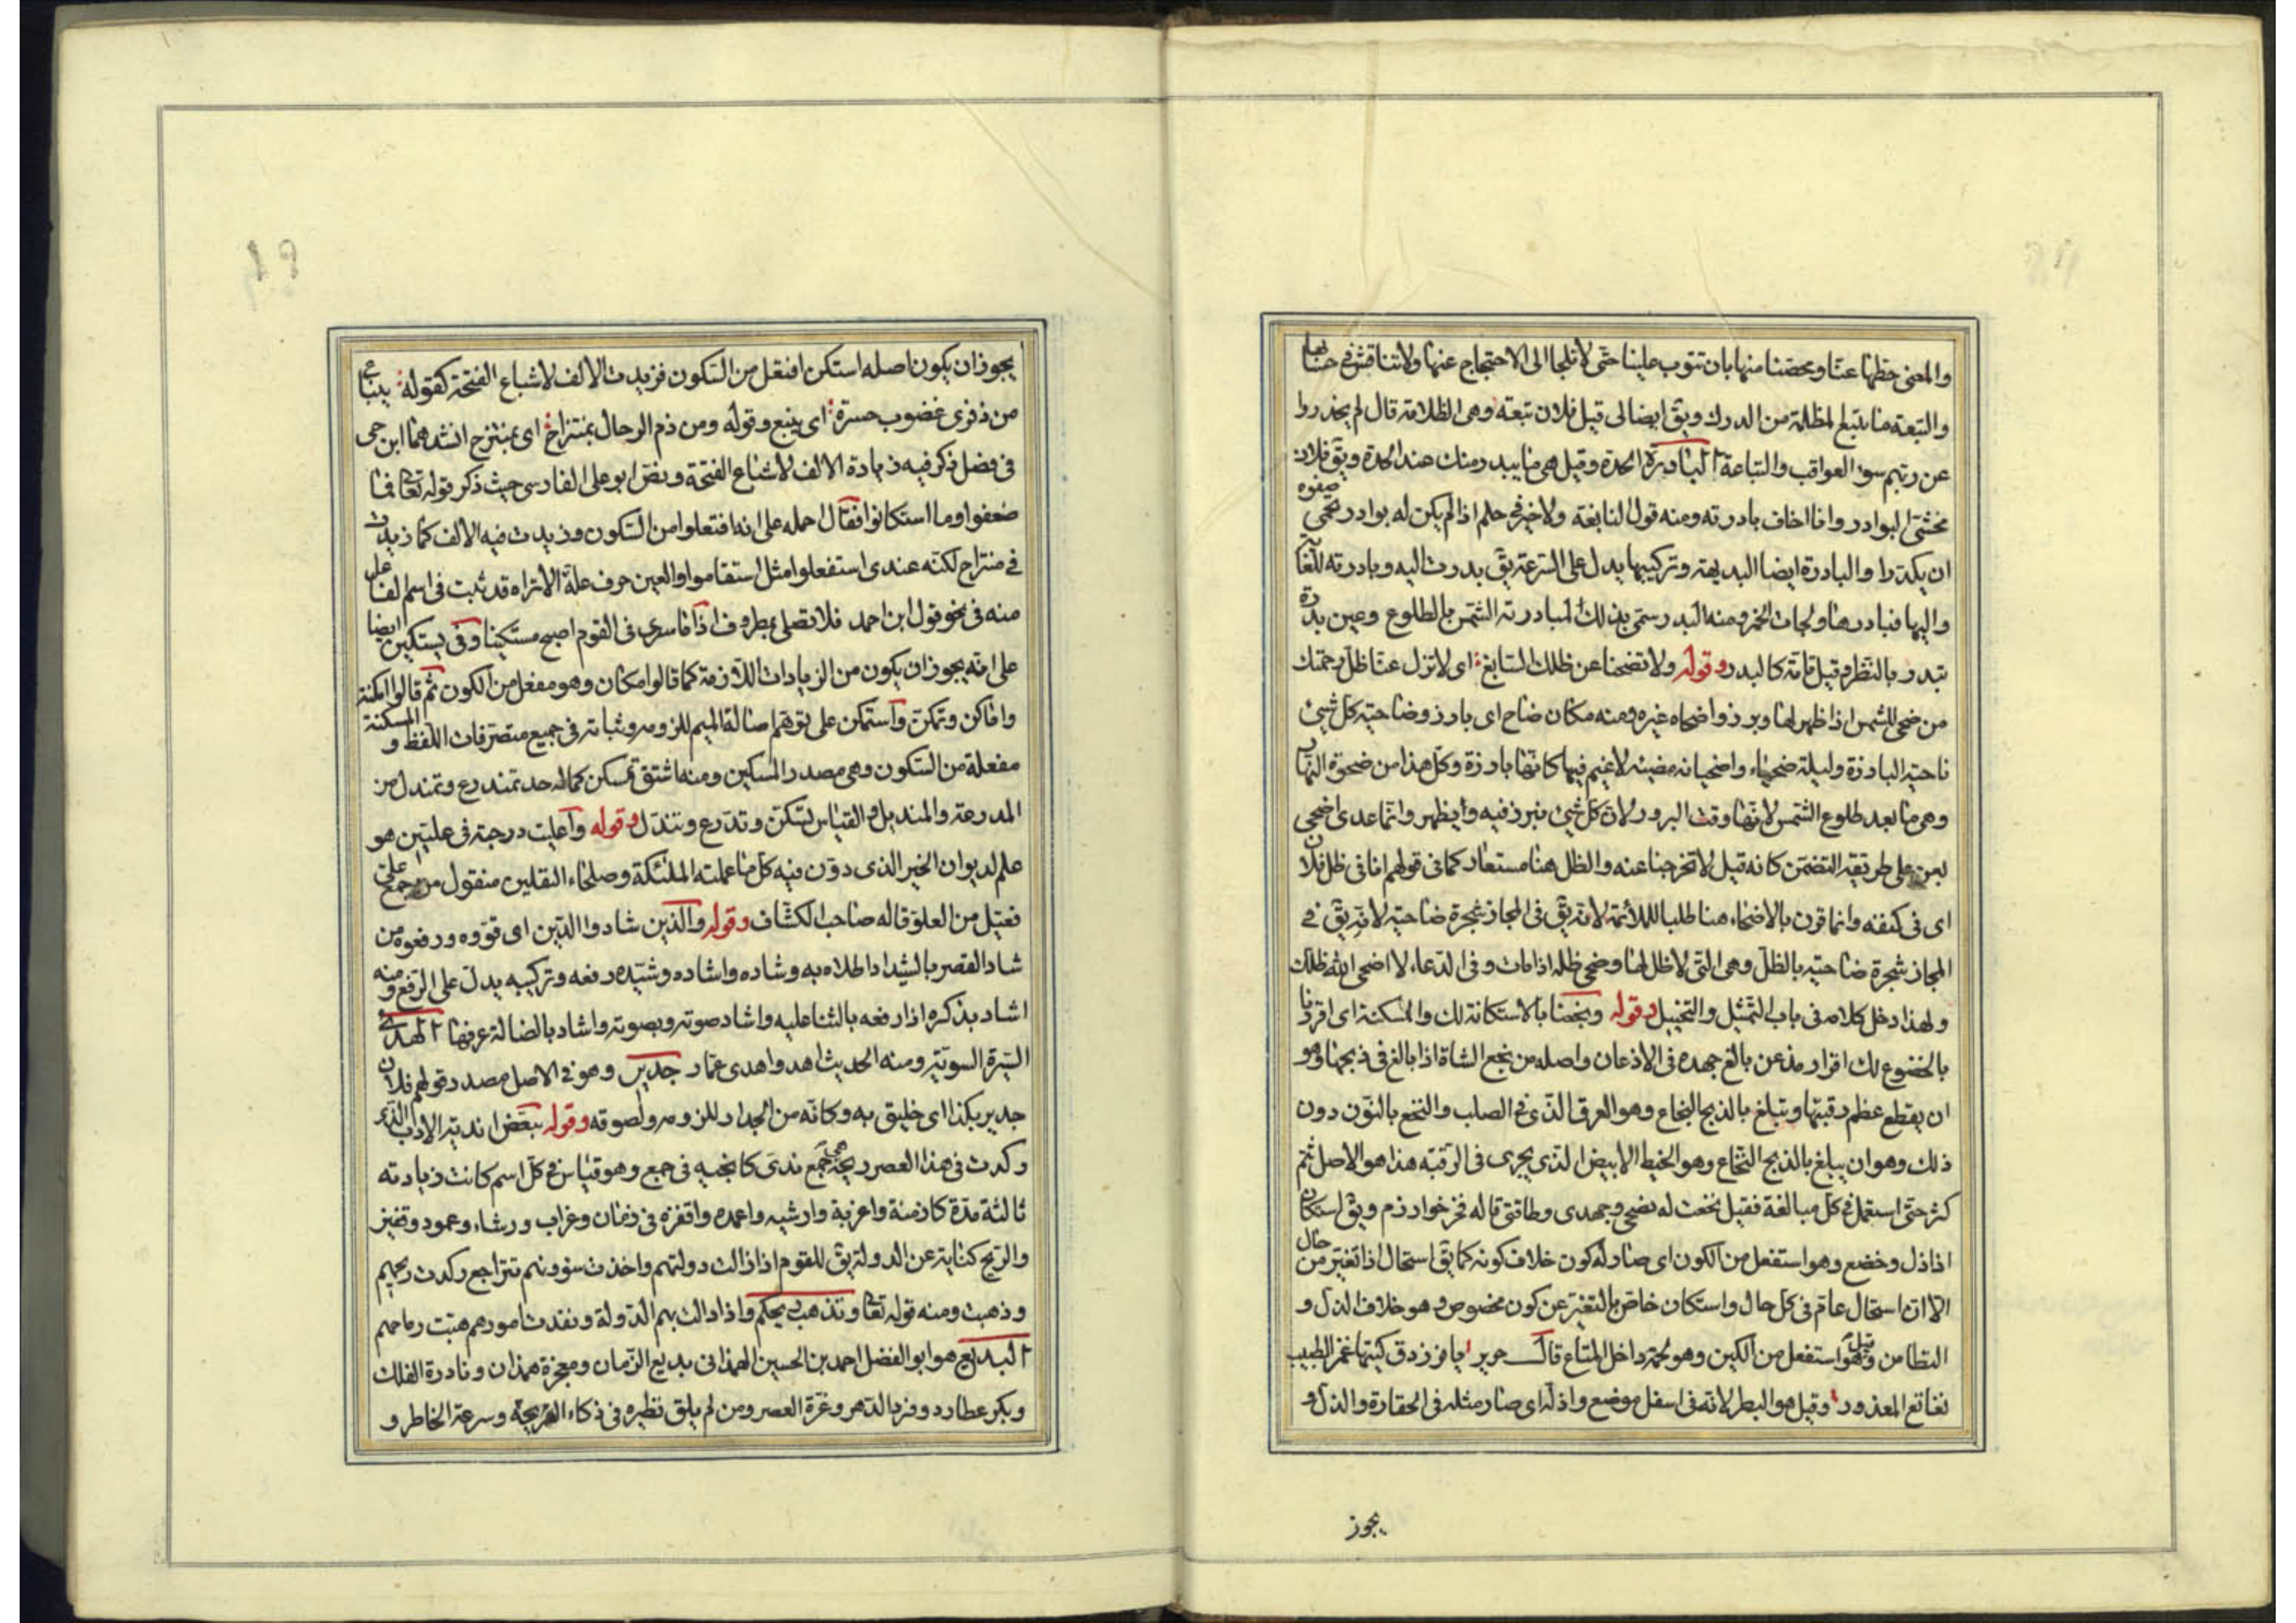 والمعنى حطها عنا ومحصنا منها بان تتوب علينا حتى لا نلجا الى الاحتجاج عنها ولا تناقش في حسابها
والتبعة ما يتبع لمظلمة من الدرك ويق ايضا لى قبل فلان تبعة وهى الظلامة قال لم يحذروا
عن ربهم سوء العواقب والتباعة البادرة الحدة وقيل هى ما يبدر منك عند الحدة ويق فلان
مخشى البوادر وانا اخاف بادرته ومنه قول النابغة ولا خير فى حلم اذا لم يكن له بوادر تحمى صفوه
ان يكدرا والبادرة ايضا البديهة وتركيبها يدل على السرعة يق بدرت اليه وبادرته للغاية
واليها فبادرها ولجات الخمر ومنه البدر سمى بذلك لمبادرته الشمس بالطلوع وعين بدرة
تبدر بالنظر وقيل تامة كالبدر وقوله ولا تضحنا عن ظلك السابغ اى لا تزل عنا ظل رحمتك
من ضحى للشمس اذا ظهر لها وبرز واضحاه غيره ومنه مكان ضاح اى بارز وضاحية كل شئ
ناحيته البارزة وليلة ضحياء واضحيانه مضيئة لا غيم فيها كانها بارزة وكل هذا من ضحوة النهار
وهى ما بعد طلوع الشمس لانها وقت البروز لان كل شئ يبرز فيه ويظهر وانما عدى اضحى
بعن على طريقة التضمن كانه قيل لا تخرجنا عنه والظل هنا مستعار كما فى قولهم انا فى ظل فلان
اى فى كنفه وانما قرن بالاضحاء هنا طلبا للملائمة لانه يق فى المجاز شجرة ضاحية لانه يق في
المجاز شجرة ضاحية بالظل وهى التى لا ظل لها وضحى ظله اذا مات وفى الدعاء لا اضحى الله ظلك
ولهذا دخل كلامه فى باب التمثيل والتخييل وقوله وبخعنا بالاستكانة لك والمسكنة اى اقررنا
بالخضوع لك اقرار مذعن بالغ جهده فى الاذعان واصله من بخع الشاة اذا بالغ فى ذبحها وهو
ان يقطع عظم رقبتها ويبلغ بالذبح البخاع وهو العرق الذى فى الصلب والنخع بالنون دون
ذلك وهو ان يبلغ بالذبح النخاع وهو الخيط الابيض الذى يجرى فى الرقبة هذا هو الاصل ثم
كثر حتى استعمل فى كل مبالغة فقيل بخعت له نصحى وجهدى وطاقتى قاله فخر خوارزم ويق استكان
اذا ذل وخضع وهو استفعل من الكون اى صار له كون خلاف كونه كما يق استحال اذا تغير من حال
الا ان استحال عام فى كل حال واستكان خاص بالتغير عن كون مخصوص وهو خلاف الذل و
التطامن وقيل هو استفعل من الكين وهو لحمة داخل المتاع قال جرير يا فرزدق كينها غمز الطبيب
نغانغ المعذور وقيل هو البظر لانه فى اسفل موضع واذله اى صار مثله فى الحقارة والذل و
يجوز
يجوز ان يكون اصله استكن افتعل من السكون فزيدت الالف لاشباع الفتحة كقوله ينباع
من ذفرى غضوب حسرة اى ينبع وقوله ومن ذم الرجال بمنتزاح اى بمنتزح انشدهما ابن جنى
فى فصل ذكر فيه زيادة الالف لاشباع الفتحة ونص ابو على الفارسى حيث ذكر قوله تعالى فما
ضعفوا وما استكانوا فقال احمله على انه افتعلوا من السكون وزيدت فيه الالف كما زيدت
فى منتزاح لكنه عندى استفعلوا مثل استقاموا والعين حرف علة الا تراه قد ثبت فى اسم الفاعل
منه فى نحو قول ابن احمد فلا تصلى بمطروف اذا ما سرى فى القوم اصبح مستكينا وفى يستكين ايضا
على انه يجوز ان يكون من الزيادات اللازمة كما قالوا مكان وهو مفعل من الكون ثم قالوا امكنة
واماكن وتمكن واستمكن على توهم اصالة الميم للزومه وثباته فى جميع متصرفات اللفظ والمسكنة
مفعلة من السكون وهى مصدر المسكين ومنه اشتق تمسكن كماله حد تمندرع وتمندل من
المدرعة والمنديل والقياس تسكن وتدرع وتندل وقوله واعليت درجته فى عليين هو
علم لديوان الخير الذى دون فيه كل ما عملته الملئكة وصلحاء الثقلين منقول من جمع على
فعيل من العلو قاله صاحب الكشاف وقوله والذين شادوا الدين اى قووه ورفعوه من
شاد القصر بالشيد اذا طلاه به وشاده واشاده وشيده رفعه وتركيبه يدل على الرفع ومنه
اشاد بذكره اذا رفعه بالثنا عليه واشاد صوته وبصوته واشاد بالضالة عرفها الهدى
السيرة السوية ومنه الحديث اهدوا هدى عمار جدير وهو فى الاصل مصدر قولهم فلان
جدير بكذا اى خليق به وكانه من الجدار للزومه ولصوقه وقوله ببعض اندية الادب الذى
ركدت فى هذا العصر ريحه هى جمع ندى كانجيه فى جمع وهو قياس فى كل اسم كانت زيادته
ثالثة مدة كازمنة واغربة وارشيه واعمده واقفزه فى زمان وغراب ورشاء وعمود وقفيز
والريح كناية عن الدولة يق للقوم اذا زالت دولتهم واخذت سوونهم تتراجع ركدت ريحهم
وذهبت ومنه قوله تعالى وتذهب ريحكم واذا دالت بهم الدولة ونفذت امورهم هبت رياحهم
البديع هو ابو الفضل احمد بن الحسين الهمذانى بديع الزمان ومعجزة همذان ونادرة الفلك
وبكر عطارد وفرد الدهر وغرة العصر ومن لم يلق نظيره فى ذكاء القريحة وسرعة الخاطر و